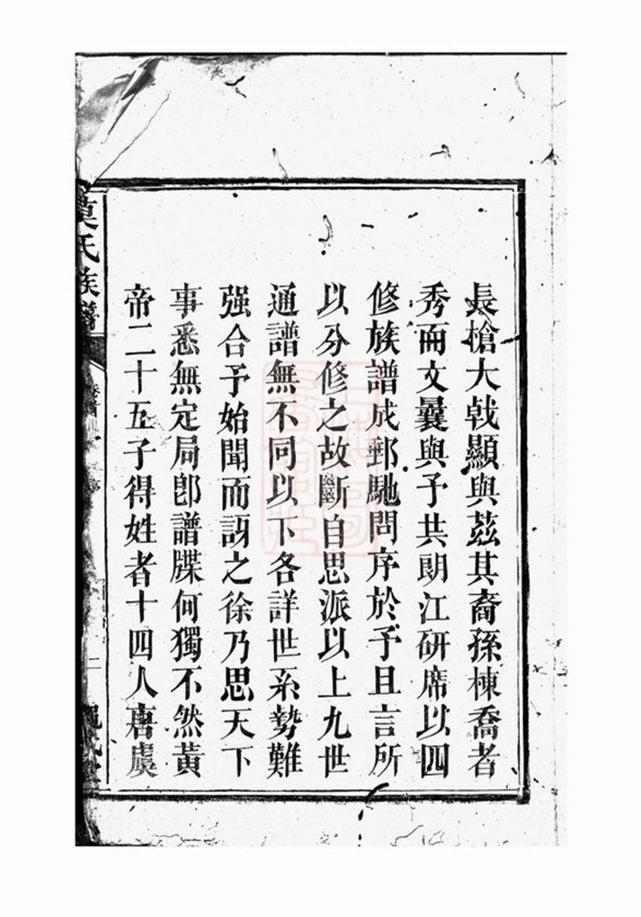 長槍大戟顯與茲其裔孫棟喬者
秀而文曩與予共朗江研席以四
修族譜成郵馳問序於予且言所
以分修之故斷自思派以上九世
通譜無不同以下各詳世系勢難
強合予始聞而訝之徐乃思天下
事悉無定局卽譜牒何獨不然黃
帝二十五子得姓者十四人唐虞
莫氏族譜